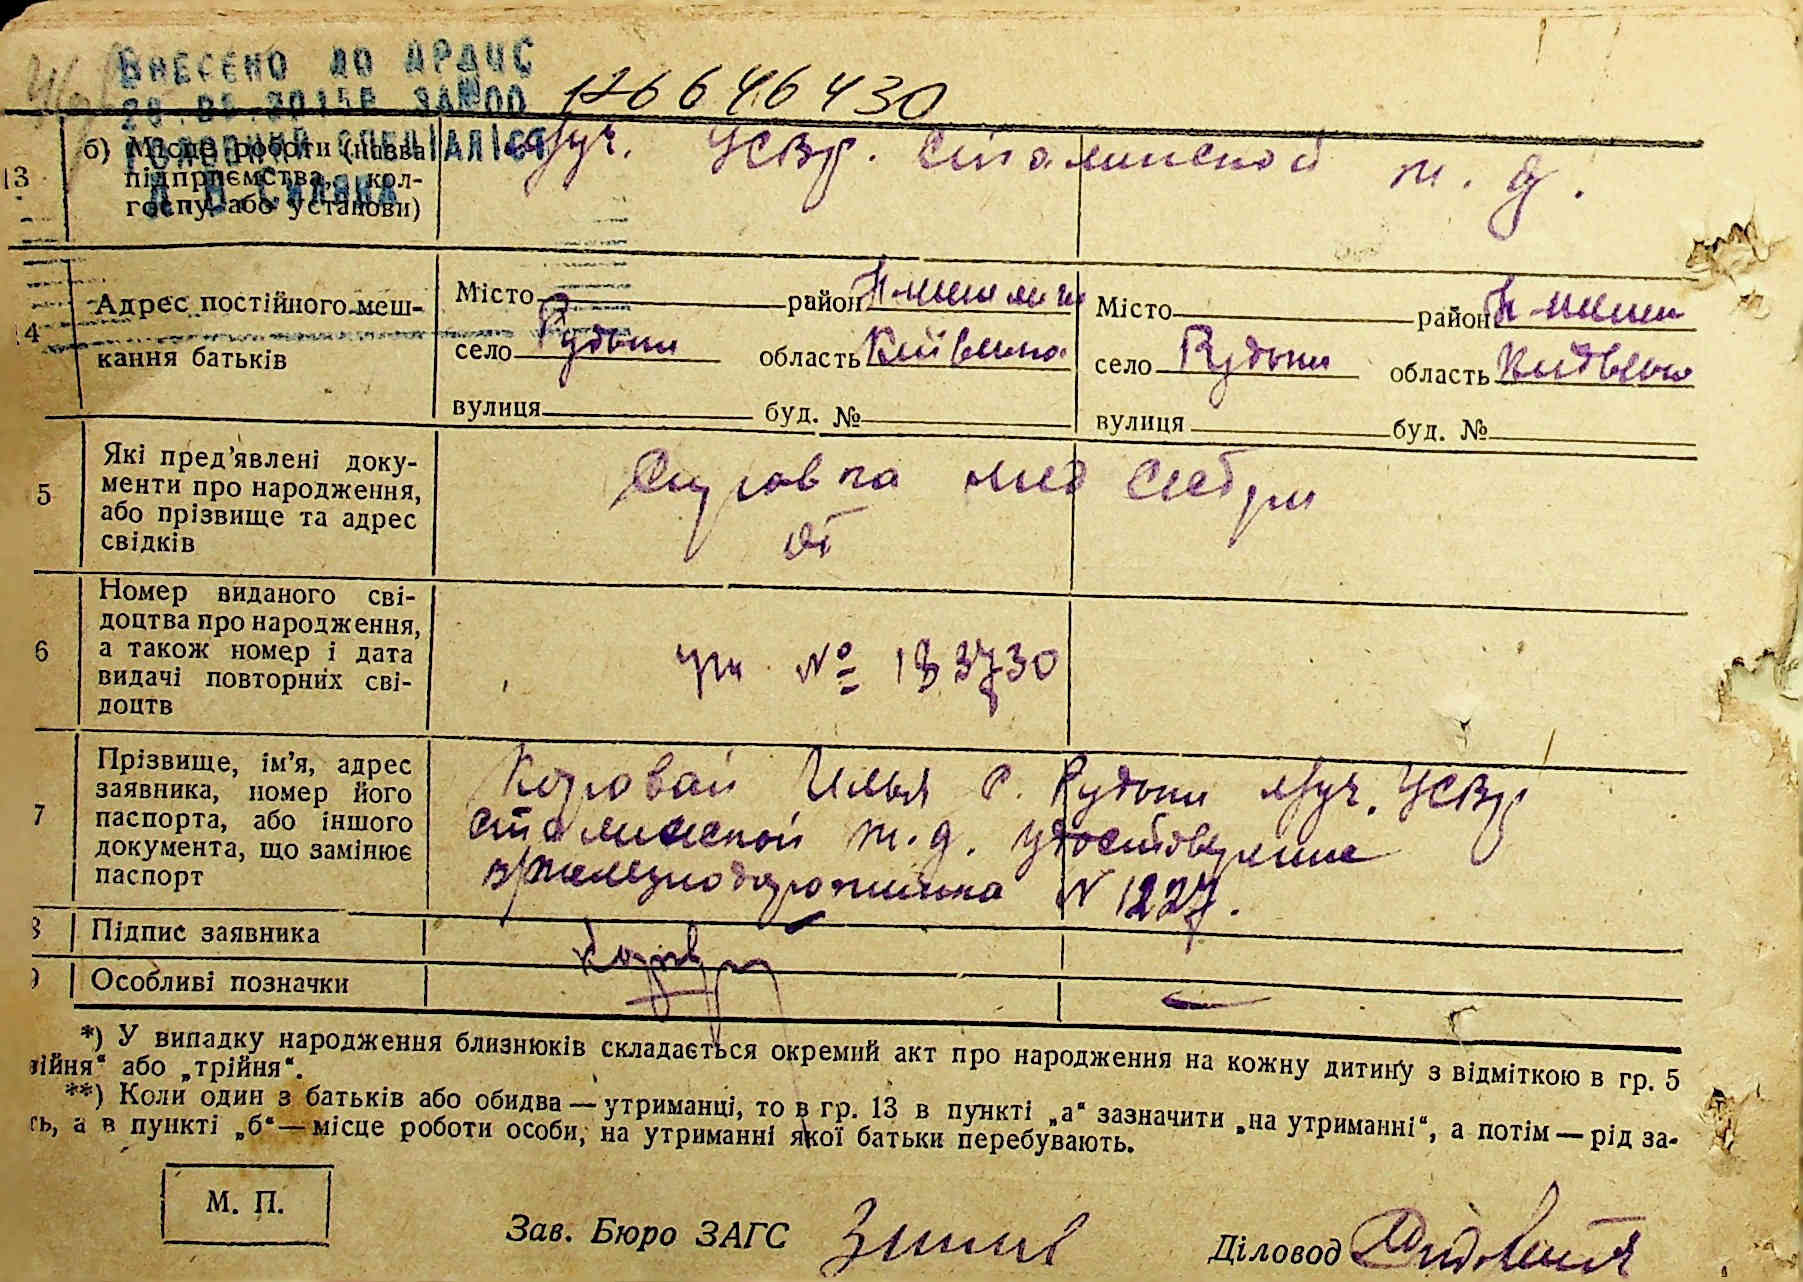 ВНЕСЕНО ДО ДРАЦС
126646430
13 б) Місце роботи (назва підприємства, колгоспу або установи)
Сталинской ж. д.
14 Адрес постійного мешкання батьків
Місто район
село Рудыки область Київська
вулиця буд. №
Місто район
село Рудыки область
вулиця буд. №
5 Які пред'явлені документи про народження, або прізвище та адрес свідків
Справка мед сестры
от
6 Номер виданого свідоцтва про народження, а також номер і дата видачі повторних свідоцтв
№ 133730
7 Прізвище, ім'я, адрес заявника, номер його паспорта, або іншого документа, що замінює паспорт
Коровай Илья с. Рудыки
Сталинской ж. д. удостоверение
железнодорожника N 1227.
8 Підпис заявника
9 Особливі позначки
*) У випадку народження близнюків складається окремий акт про народження на кожну дитину з відміткою в гр. 5
війня“ або „трійня“.
**) Коли один з батьків або обидва — утриманці, то в гр. 13 в пункті „а“ зазначити „на утриманні“, а потім — рід за-
ть, а в пункті „б“ — місце роботи особи, на утриманні якої батьки перебувають.
М. П.
Зав. Бюро ЗАГС
Діловод